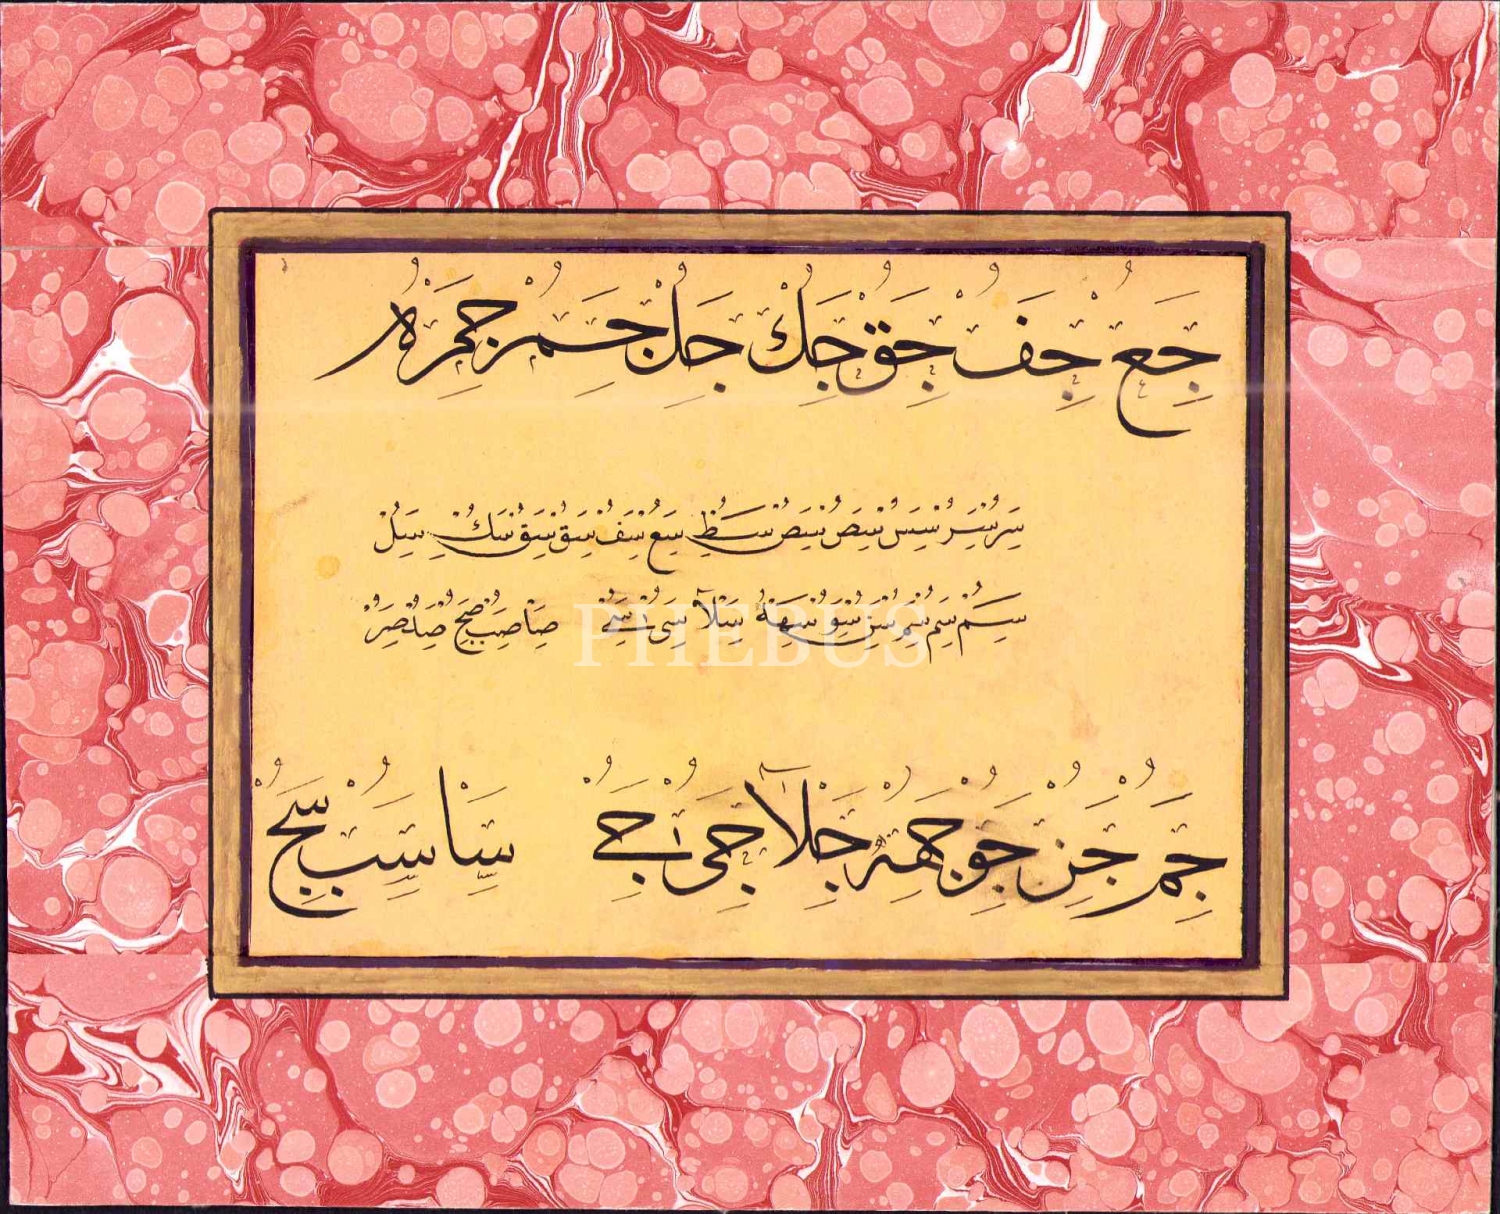 جع جف جق جك جل جم جمر ه
سر سر سس سص سص سط سع سف سق سق سك سل
سم سم سم سن سو سهه سلا سى سے صا صب صح صد صر
جم جن جو جهه جلا جى جے سا سب سح
PHEBUS